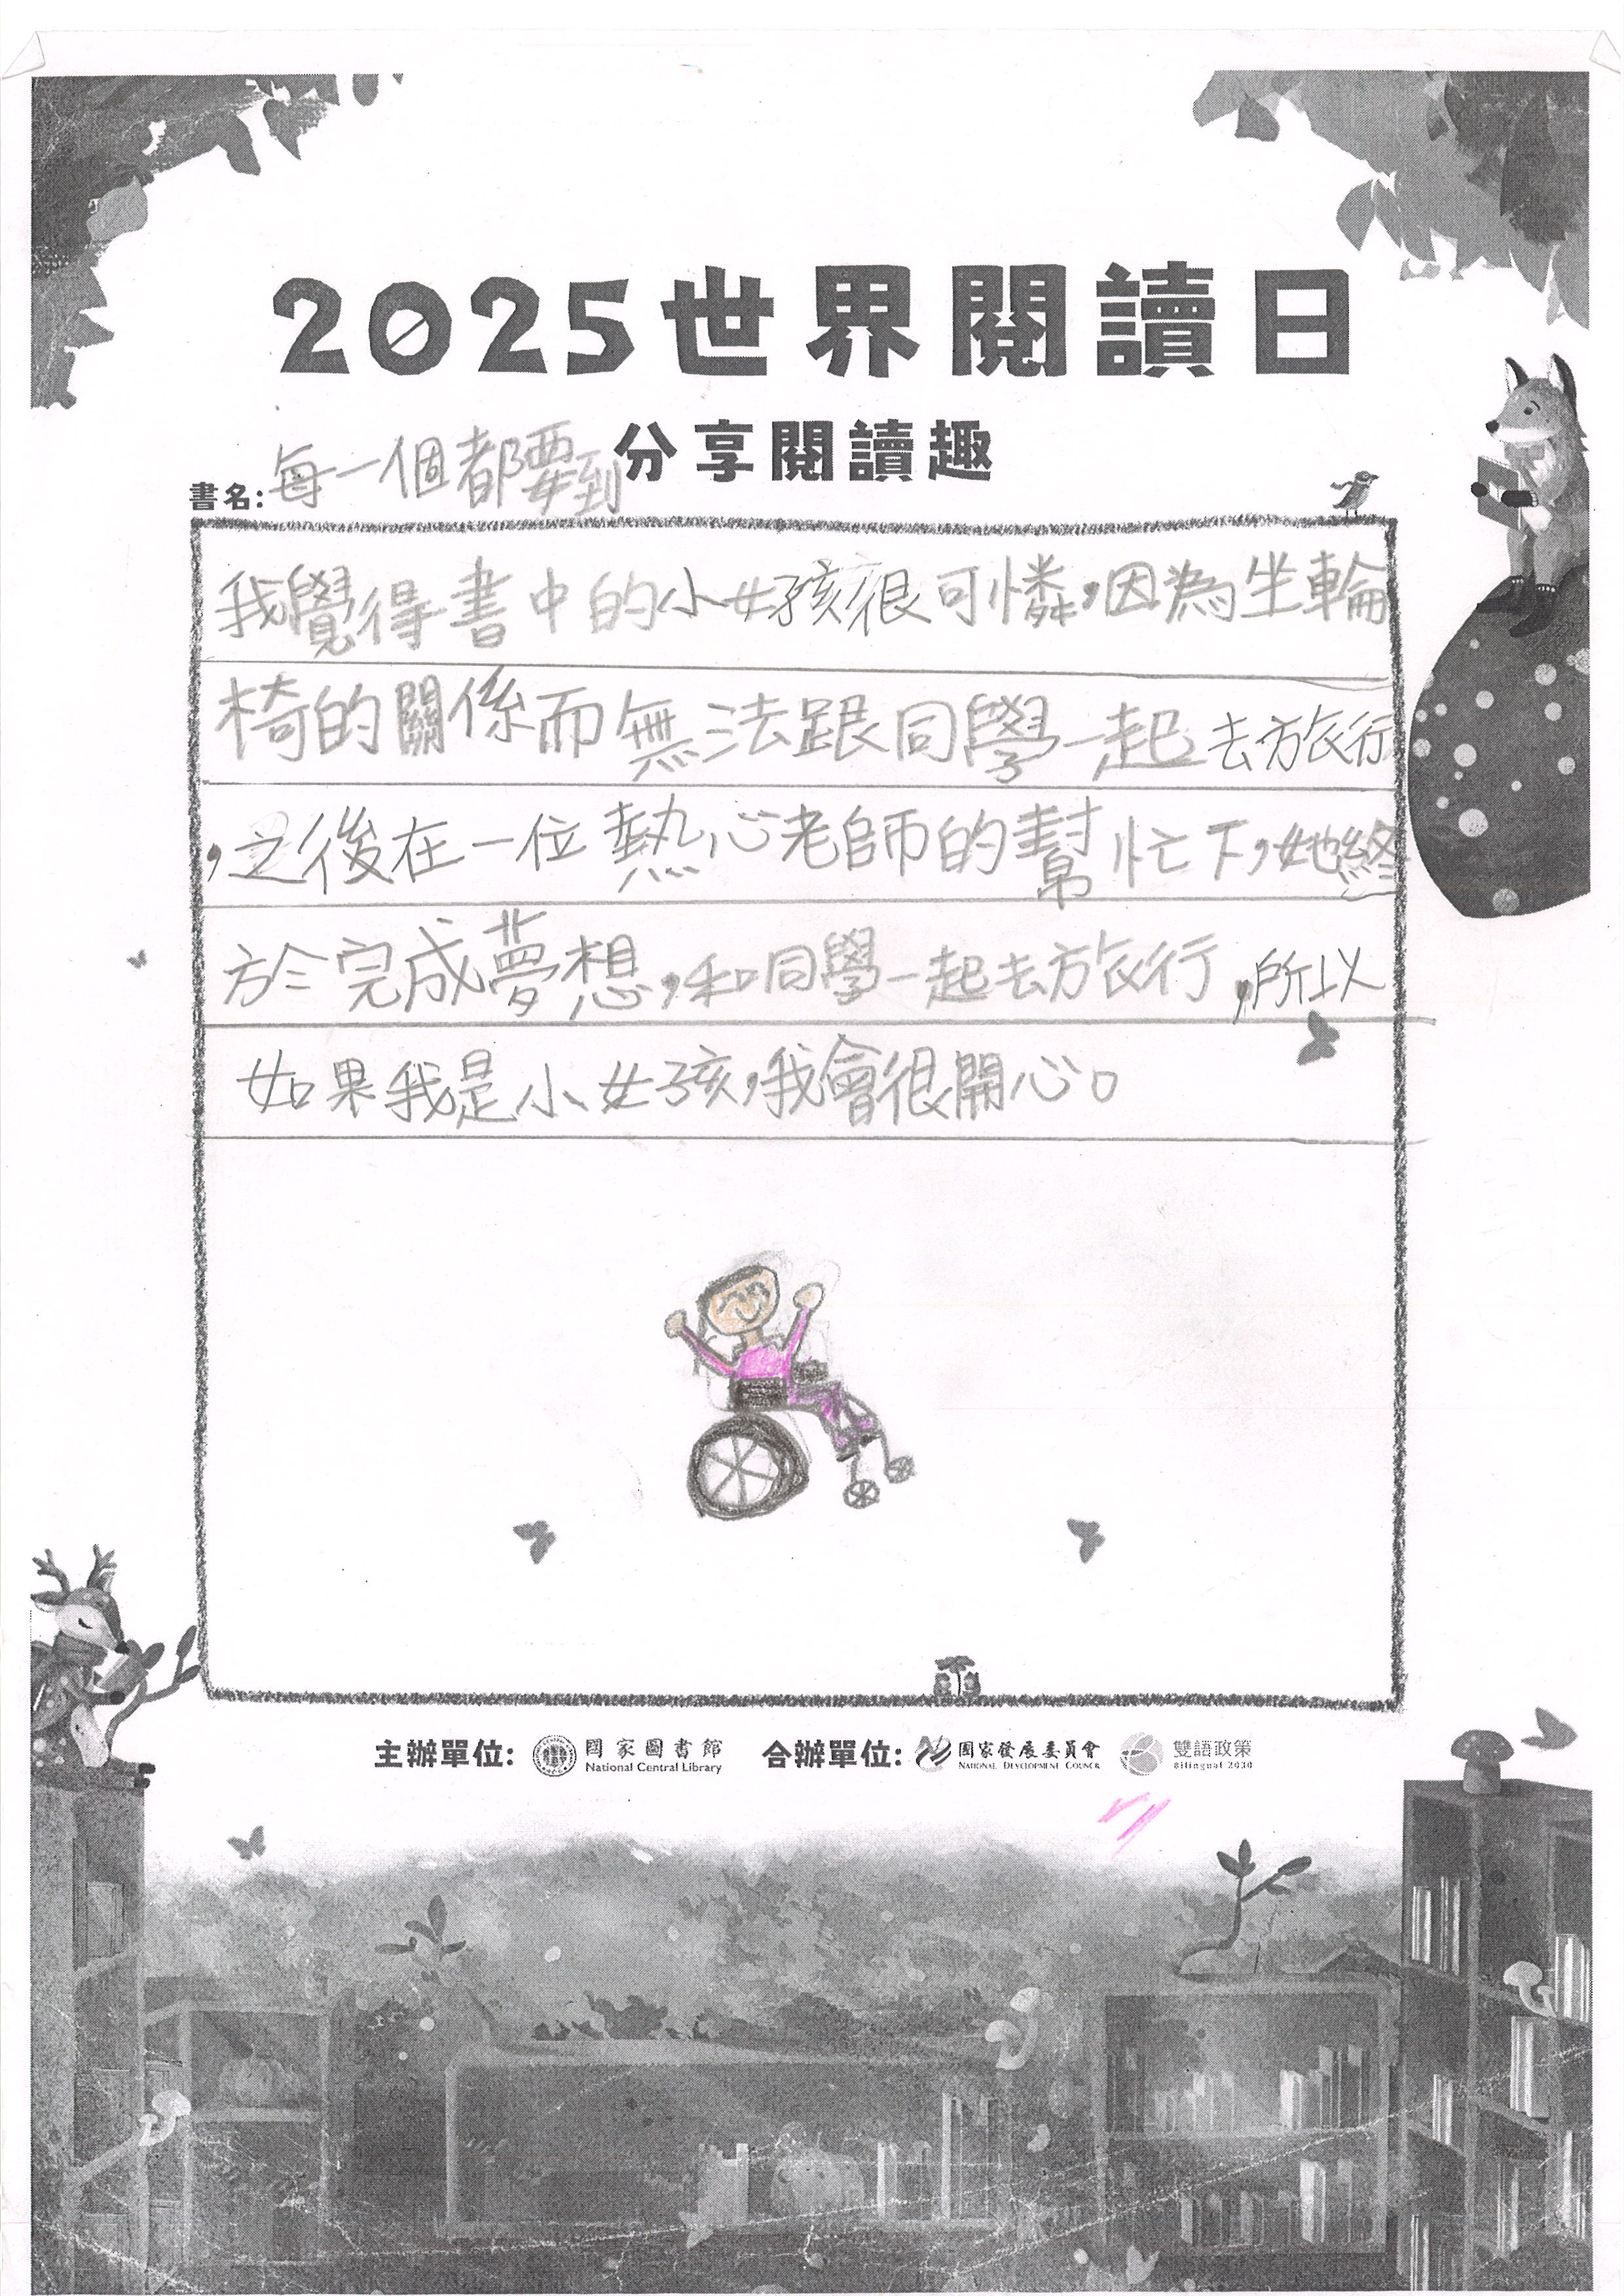 2025世界閱讀日
分享閱讀趣
書名:每一個都要到
我覺得書中的小女孩很可憐,因為坐輪
椅的關係而無法跟同學一起去旅行
,之後在一位熱心老師的幫忙下,她終
於完成夢想,和同學一起去旅行,所以
如果我是小女孩,我會很開心。
主辦單位: 國家圖書館 National Central Library 合辦單位: 國家發展委員會 NATIONAL DEVELOPMENT COUNCIL 雙語政策 Bilingual 2030